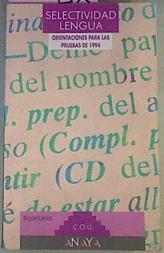 SELECTIVIDAD
LENGUA
ORIENTACIONES PARA LAS
PRUEBAS DE 1994
—Deme
par
del nombre
. prep. del a
so (Compl. p
ntir (CD de
é de estar all
Miguel
C.O.U.
ANAYA